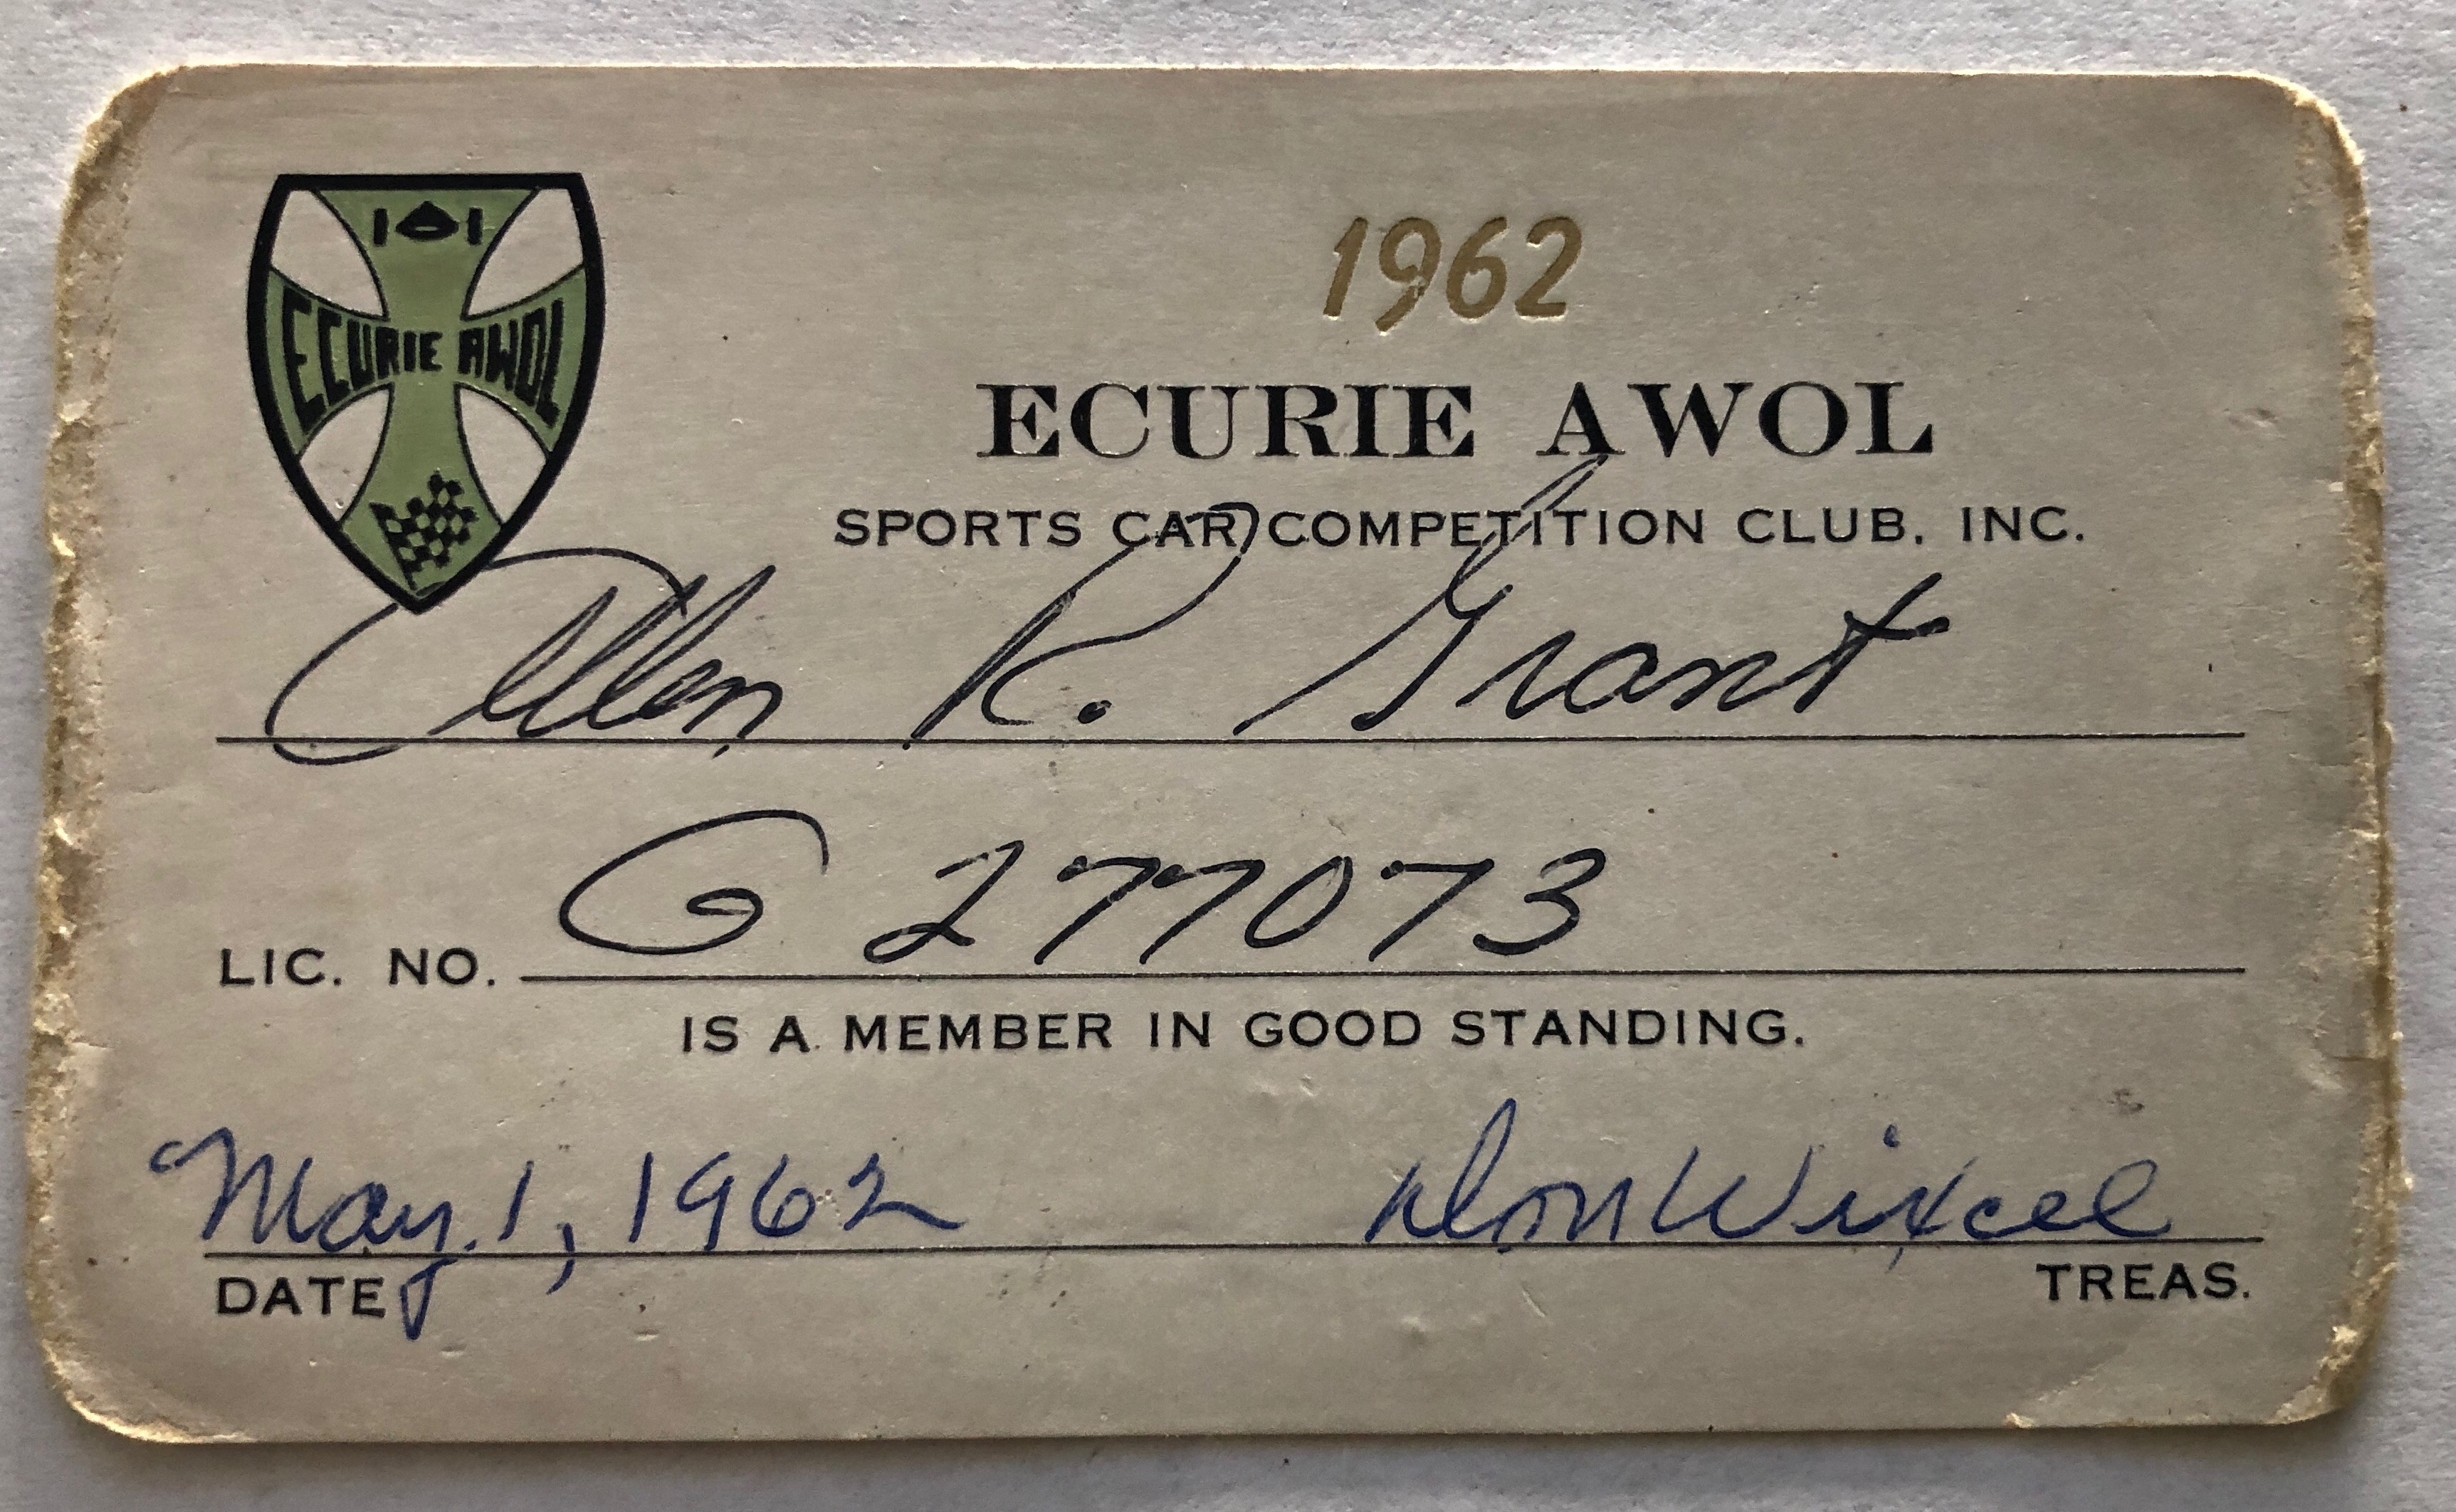 ECURIE AWOL
1962
ECURIE AWOL
SPORTS CAR COMPETITION CLUB, INC.
Allen R. Grant
LIC. NO. G 277073
IS A MEMBER IN GOOD STANDING.
May. 1, 1962 Don Wixcel
DATE TREAS.